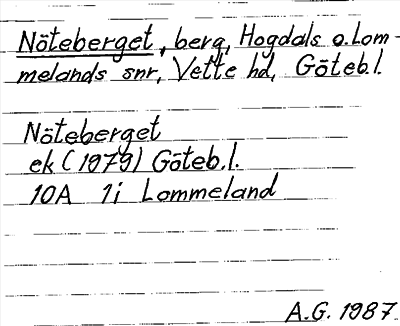 Nöteberget, berg, Hogdals o. Lom-
melands snr, Vette hd, Göteb.l.
Nöteberget
ek (1979) Göteb.l.
10A 1i Lommeland
A.G. 1987